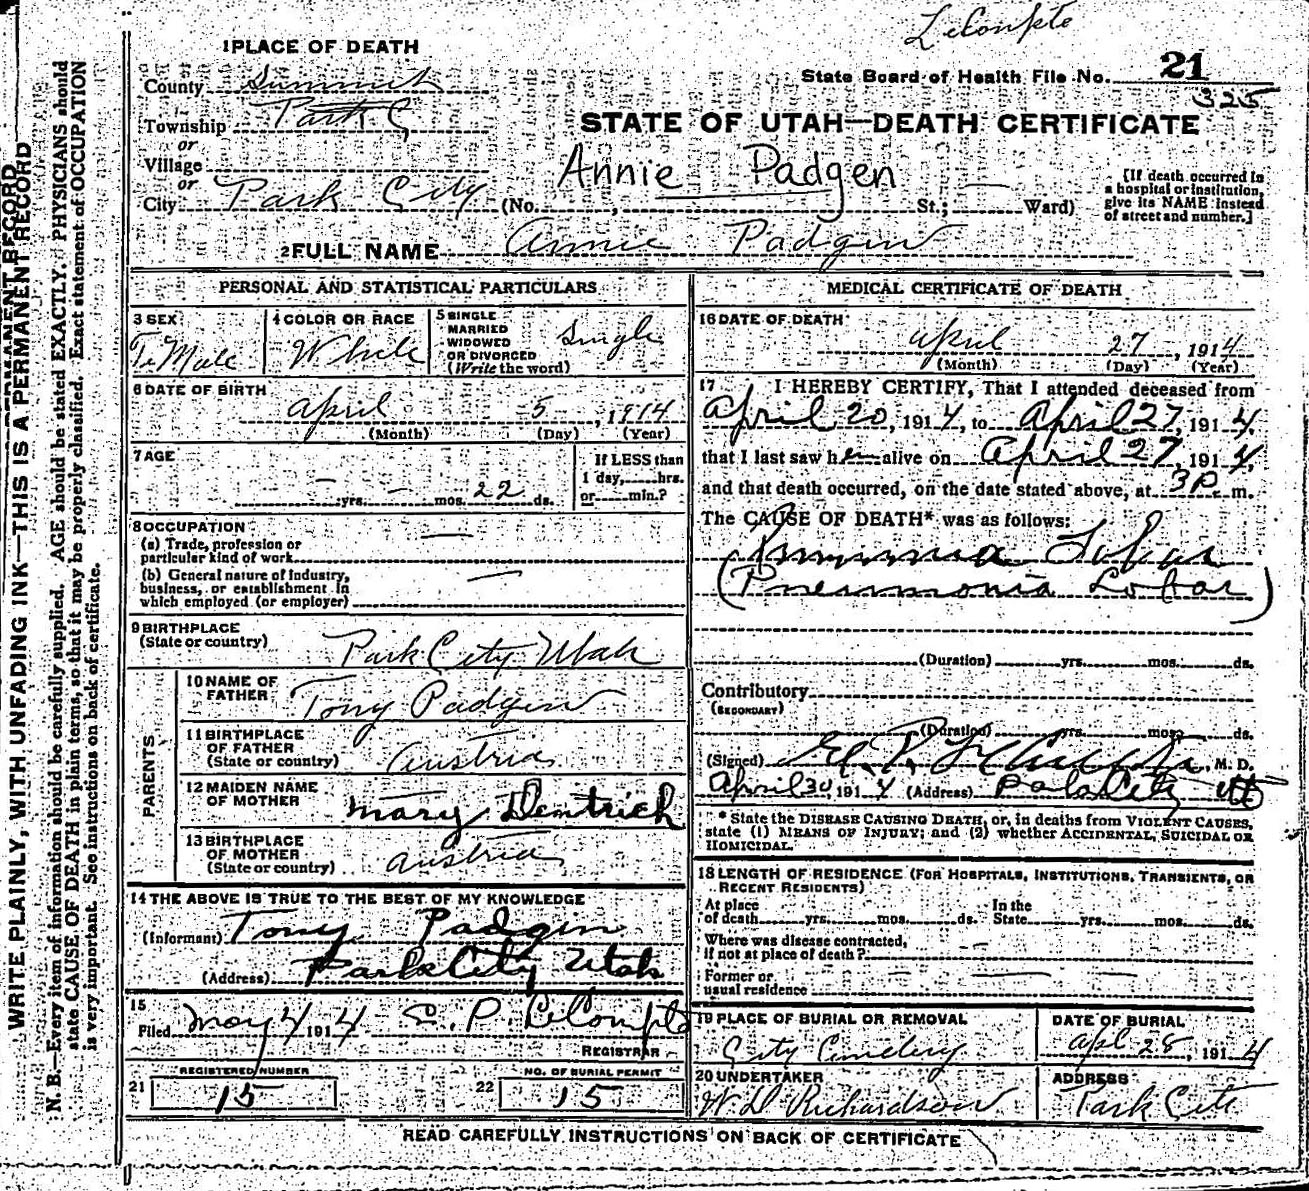 LeCompte
1 PLACE OF DEATH
County Summit
State Board of Health File No. 21
325
Township Park C
or
Village
or
City Park City
STATE OF UTAH—DEATH CERTIFICATE
Annie Padgen
(No. , St.; — Ward)
[If death occurred in
a hospital or institution,
give its NAME instead
of street and number.]
2 FULL NAME Annie Padgin
PERSONAL AND STATISTICAL PARTICULARS
3 SEX
Fe Male
4 COLOR OR RACE
White
5 SINGLE
MARRIED
WIDOWED
OR DIVORCED
(Write the word)
Single
6 DATE OF BIRTH
April 5, 1914
(Month) (Day) (Year)
7 AGE
- yrs. - mos. 22 ds.
If LESS than
1 day, hrs.
or min.?
8 OCCUPATION
(a) Trade, profession or
particular kind of work —
(b) General nature of industry,
business, or establishment in
which employed (or employer) —
9 BIRTHPLACE
(State or country)
Park City Utah
PARENTS
10 NAME OF
FATHER
Tony Padgin
11 BIRTHPLACE
OF FATHER
(State or country)
Austria
12 MAIDEN NAME
OF MOTHER
Mary Demtrich
13 BIRTHPLACE
OF MOTHER
(State or country)
Austria
14 THE ABOVE IS TRUE TO THE BEST OF MY KNOWLEDGE
(Informant) Tony Padgin
(Address) Park City Utah
15
Filed May 4 1914 E. P. LeCompte
REGISTRAR
REGISTERED NUMBER
21 15
NO. OF BURIAL PERMIT
22 15
MEDICAL CERTIFICATE OF DEATH
16 DATE OF DEATH
April 27, 1914
(Month) (Day) (Year)
17 I HEREBY CERTIFY, That I attended deceased from
April 20, 1914, to April 27, 1914,
that I last saw her alive on April 27, 1914,
and that death occurred, on the date stated above, at 3 P. m.
The CAUSE OF DEATH* was as follows:
Pneumonia Lobar
(Pneumonia Lobar)
(Duration) yrs. mos. ds.
Contributory
(SECONDARY)
(Duration) yrs. mos. ds.
(Signed) M. D.
April 30, 1914 (Address) Park City Ut
* State the DISEASE CAUSING DEATH, or, in deaths from VIOLENT CAUSES,
state (1) MEANS OF INJURY; and (2) whether ACCIDENTAL, SUICIDAL OR
HOMICIDAL.
18 LENGTH OF RESIDENCE (FOR HOSPITALS, INSTITUTIONS, TRANSIENTS, OR
RECENT RESIDENTS)
At place
of death yrs. mos. ds.
In the
State yrs. mos. ds.
Where was disease contracted,
if not at place of death? —
Former or
usual residence — —
19 PLACE OF BURIAL OR REMOVAL
City Cemetery
DATE OF BURIAL
Apl 28, 1914
20 UNDERTAKER
W D Richardson
ADDRESS
Park City
READ CAREFULLY INSTRUCTIONS ON BACK OF CERTIFICATE
WRITE PLAINLY, WITH UNFADING INK—THIS IS A PERMANENT RECORD
PERMANENT RECORD
N. B.—Every item of information should be carefully supplied. AGE should be stated EXACTLY. PHYSICIANS should
state CAUSE OF DEATH in plain terms, so that it may be properly classified. Exact statement of OCCUPATION
is very important. See instructions on back of certificate.